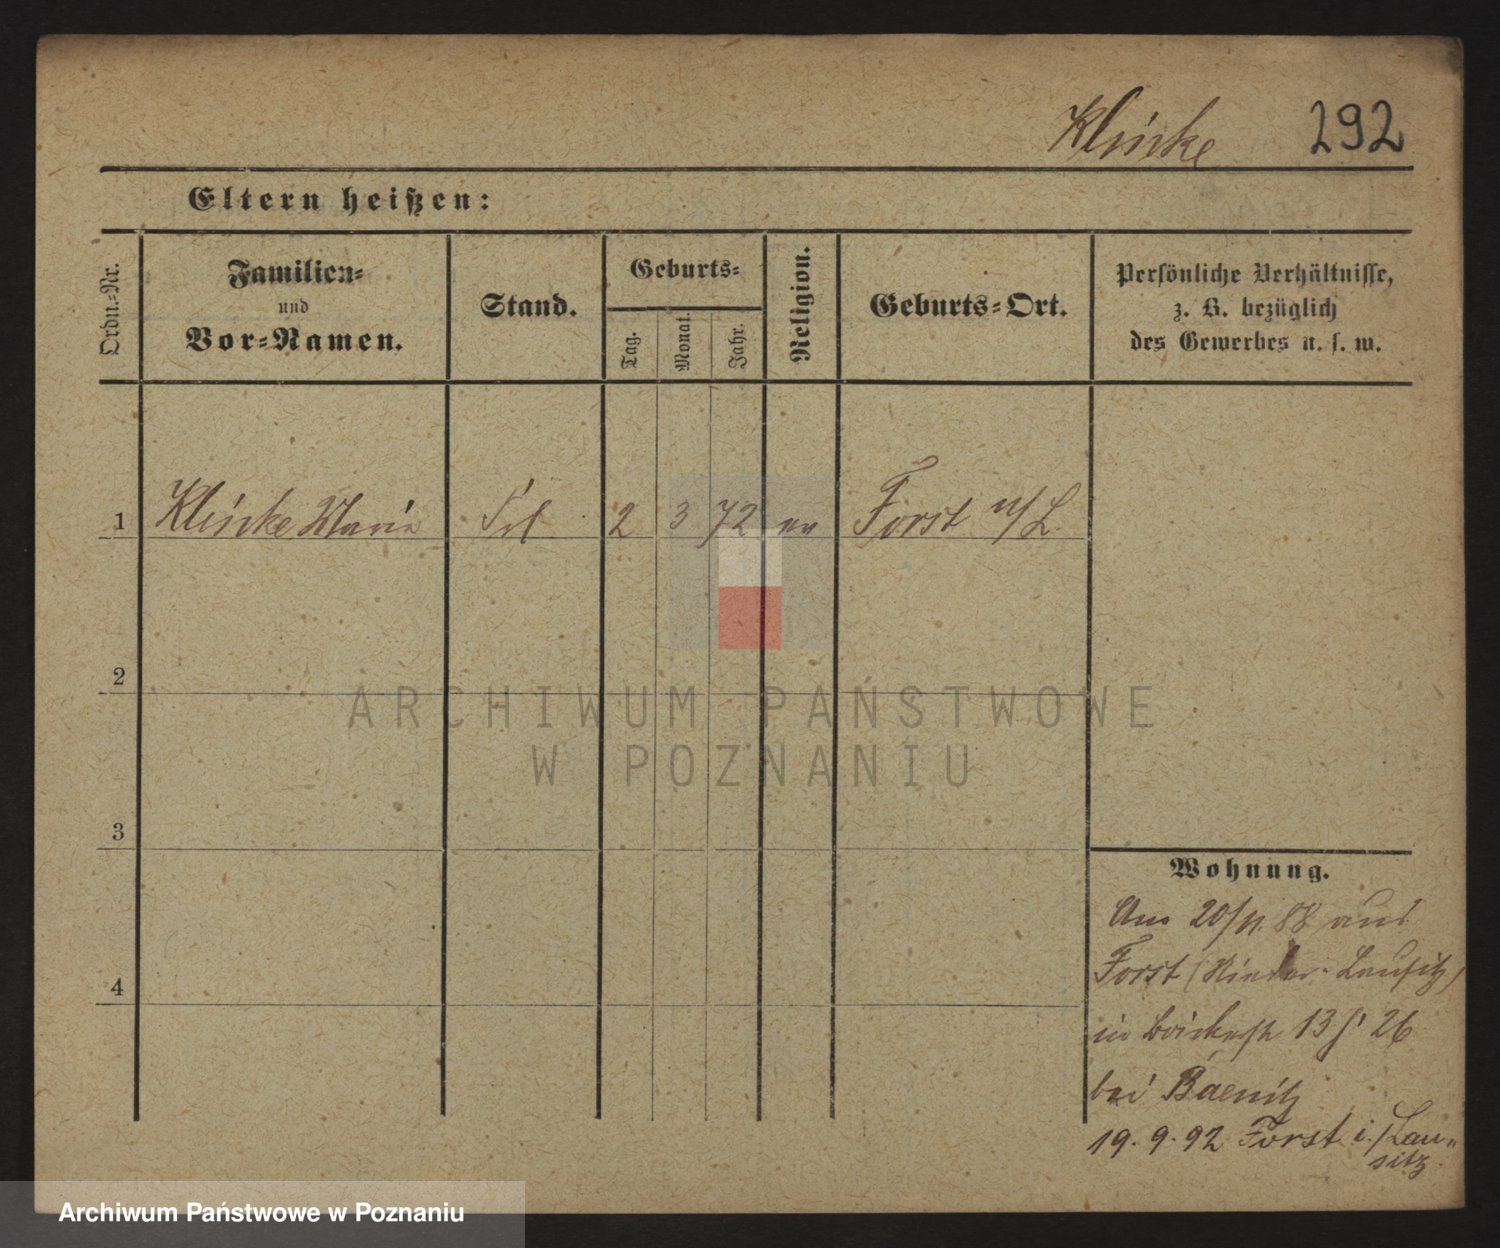 Klinke 292
Eltern heißen:
Ordn.-Nr.
Familien-
und
Vor-Namen.
Stand.
Geburts-
Tag.
Monat.
Jahr.
Religion.
Geburts-Ort.
Persönliche Verhältnisse,
z. B. bezüglich
des Gewerbes u. s. w.
1 Klinke Marie Frl 2 3 72 ev Forst n/L
2
3
4
Wohnung.
Am 20/11. 88 aus
Forst (Nieder-Lausitz)
in 13 26
bei Baenitz
19. 9. 92 Forst i./Lau-
sitz.
ARCHIWUM PAŃSTWOWE
W POZNANIU
Archiwum Państwowe w Poznaniu